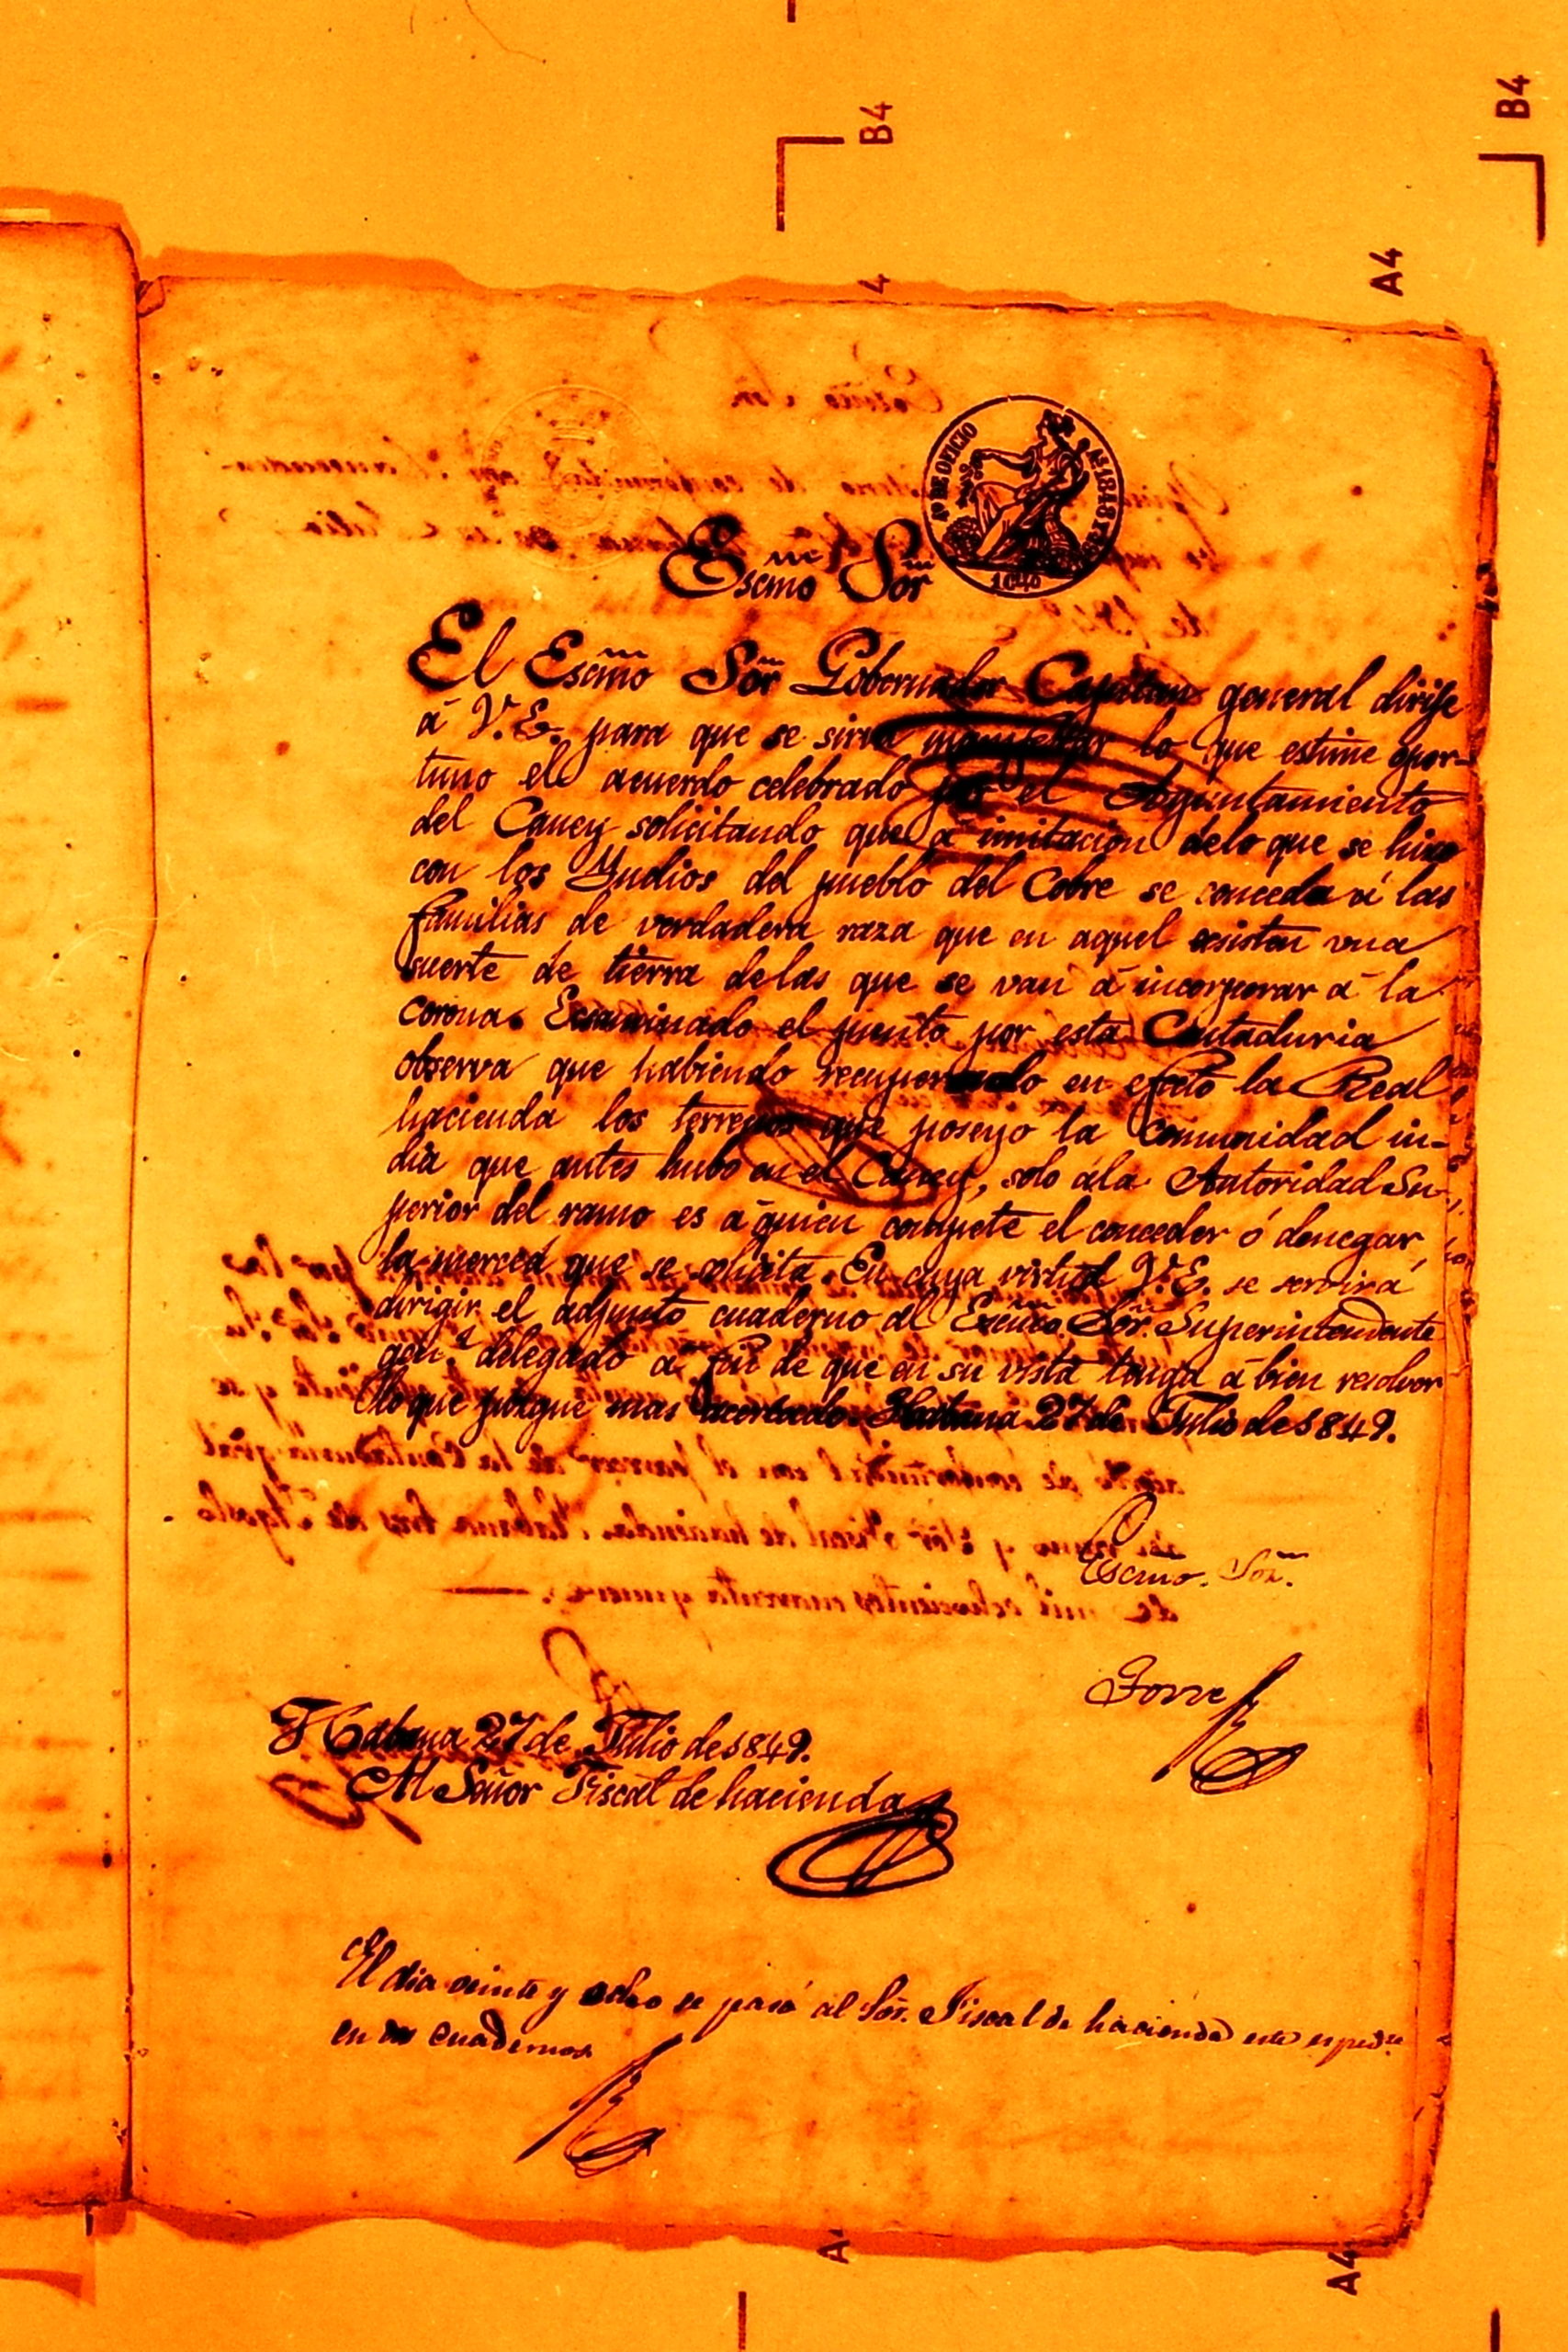 B4
B4
A4
4
4º DE OFICIO Aº 1848 Y
Escmo Sor
El Escmo Sor Gobernador Capitan general dirije
á V.E. para que se sirva manifestar lo que estime opor-
tuno el acuerdo celebrado por el Ayuntamiento
del Caney solicitando que á imitacion delo que se hizo
con los Yndios del pueblo del Cobre se conceda á las
familias de verdadera raza que en aquel esisten una
suerte de tierra delas que se van á incorporar á la
corona. Ecsaminado el punto por esta Contaduria
observa que habiendo recuperado en efecto la Real
hacienda los terrenos que poseyó la comunidad in-
dia que antes hubo en el Caney, solo ála Autoridad Su-
perior del ramo es á quien compete el conceder ó denegar
la merced que se solicita. En cuya virtud V.E. se servirá
dirigir el adjunto cuaderno al Escmo. Sor. Superintendente
genl. delegado á fin de que en su vista tenga á bien resolver
lo que juzgue mas acertado. Habana 27 de Julio de 1849.
Escmo. Sor.
Torre
Habana 27 de Julio de 1849.
Al Señor Fiscal de hacienda
El dia veinte y ocho se pasó al Sor. Fiscal de hacienda este espedte
en cuadernos
A4